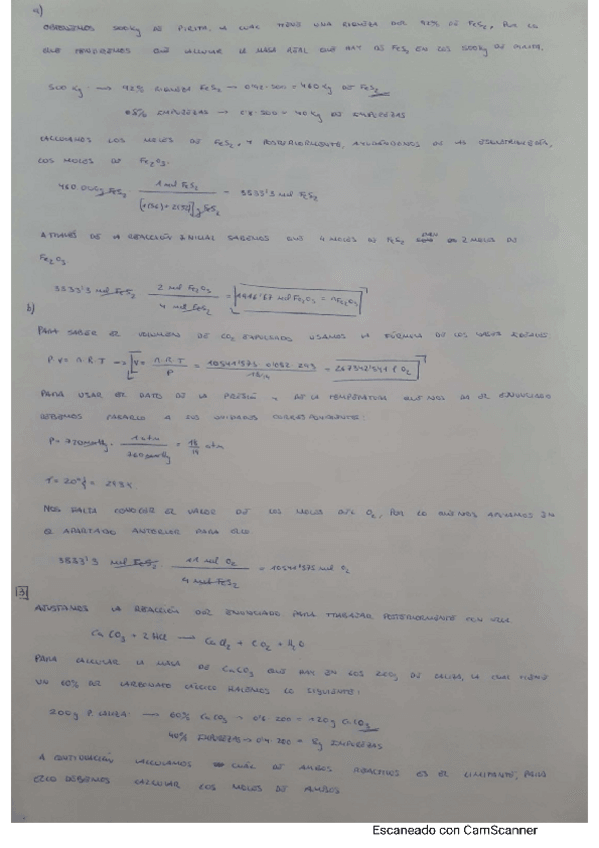 a)
OBTENEMOS 500Kg DE PIRITA, LA CUAL TIENE UNA RIQUEZA DEL 92% DE FeS2, POR LO
QUE TENDREMOS QUE CALCULAR LA MASA REAL QUE HAY DE FeS2 EN LOS 500Kg DE PIRITA.
500 Kg → 92% RIQUEZA FeS2 → 0'92·500 = 460 Kg DE FeS2
8% IMPUREZAS → 500 = 40 Kg DE IMPUREZAS
CALCULAMOS LOS MOLES DE FeS2, Y POSTERIORMENTE, AYUDÁNDONOS DE LA ESTEQUIOMETRÍA,
LOS MOLES DE Fe2O3.
460.000g FeS2 · 1 mol FeS2 / [1(56)+2(32)] g FeS2 = 3833'3 mol FeS2
A TRAVÉS DE LA REACCIÓN INICIAL SABEMOS QUE 4 MOLES DE FeS2 DAN 2 MOLES DE
Fe2O3
3833'3 mol FeS2 · 2 mol Fe2O3 / 4 mol FeS2 = 1916'67 mol Fe2O3 = nFe2O3
b)
PARA SABER EL VOLUMEN DE EXPULSADO USAMOS LA FÓRMULA DE LOS GASES IDEALES
P·V = n·R·T → V = n·R·T / P = 10541'575 · 0'082 · 293 / 18/19 = 267342'541 l O2
PARA USAR EL DATO DE LA PRESIÓN Y DE LA TEMPERATURA QUE NOS DA EL ENUNCIADO
DEBEMOS PASARLO A SUS UNIDADES CORRESPONDIENTES:
P = 720mmHg · 1 atm / 760mmHg = 18/19 atm
T = 20° = 293K
NOS FALTA CONOCER EL VALOR DE LOS MOLES DEL O2, POR LO QUE NOS APOYAMOS EN
EL APARTADO ANTERIOR PARA ELLO
3833'3 mol FeS2 · 11 mol O2 / 4 mol FeS2 = 10541'575 mol O2
3
AJUSTAMOS LA REACCIÓN DEL ENUNCIADO PARA TRABAJAR POSTERIORMENTE CON ELLA
CaCO3 + 2HCl → CaCl2 + CO2 + H2O
PARA CALCULAR LA MASA DE CaCO3 QUE HAY EN LOS 200g DE CALIZA, LA CUAL TIENE
UN 60% DE CARBONATO CÁLCICO HACEMOS LO SIGUIENTE:
200g P. CALIZA: → 60% CaCO3 → 0'6·200 = 120g CaCO3
40% IMPUREZAS → 0'4·200 = 8g IMPUREZAS
A CONTINUACIÓN CALCULAMOS CUÁL DE AMBOS REACTIVOS ES EL LIMITANTE, PARA
ELLO DEBEMOS CALCULAR LOS MOLES DE AMBOS
Escaneado con CamScanner